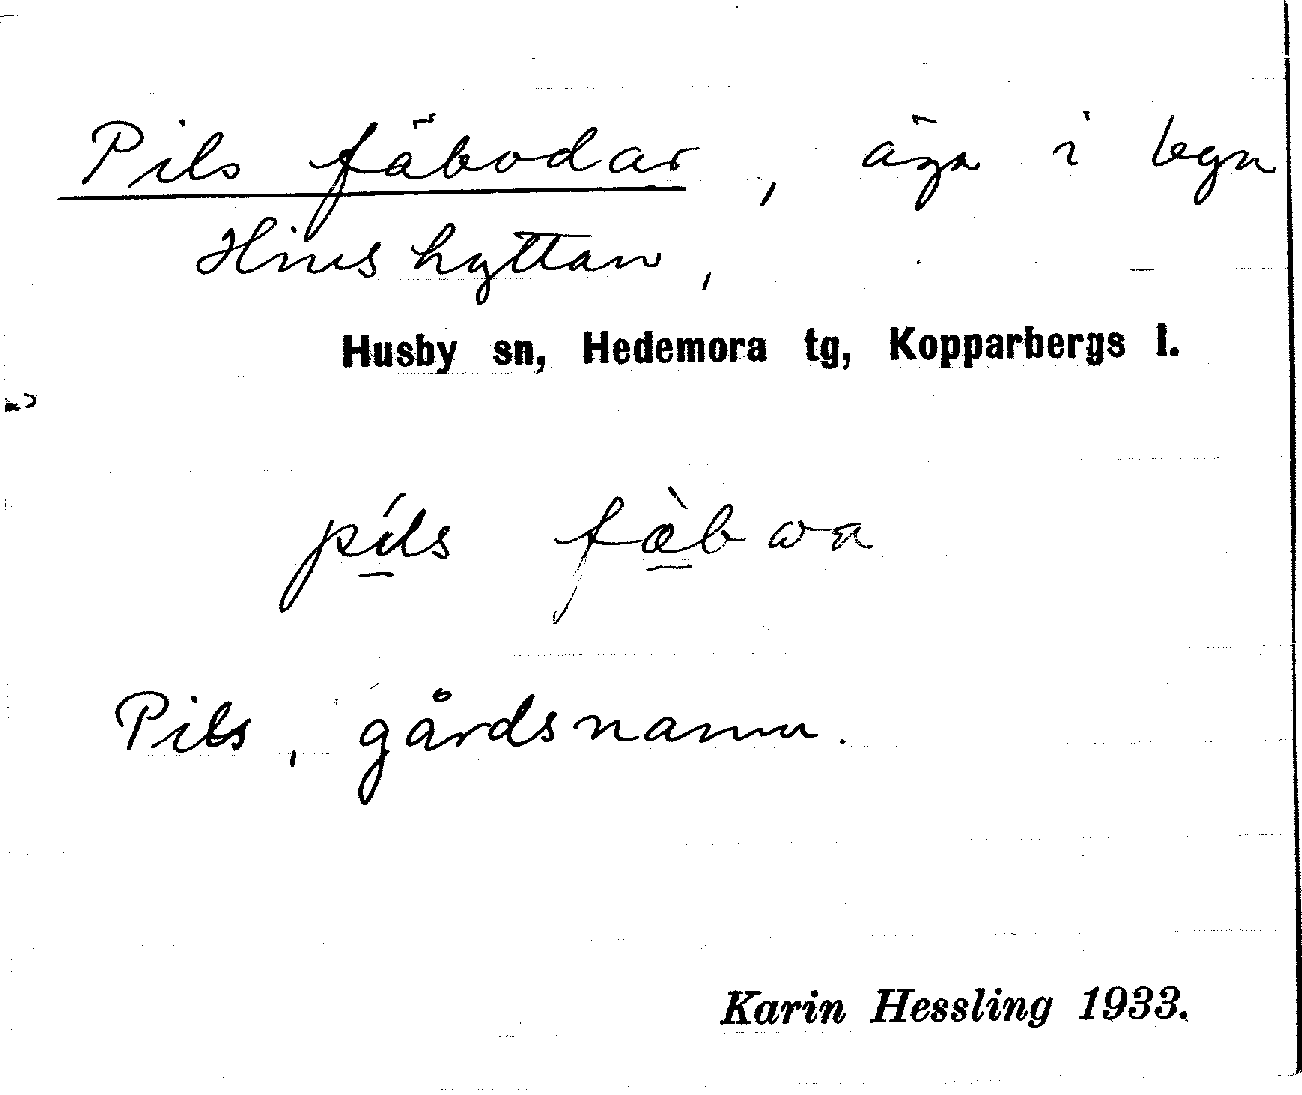 Pils fäbodar, äga i byn
Hinshyttan,
Husby sn, Hedemora tg, Kopparbergs l.
píls fæ̀bωa
Pils, gårdsnamn.
Karin Hessling 1933.